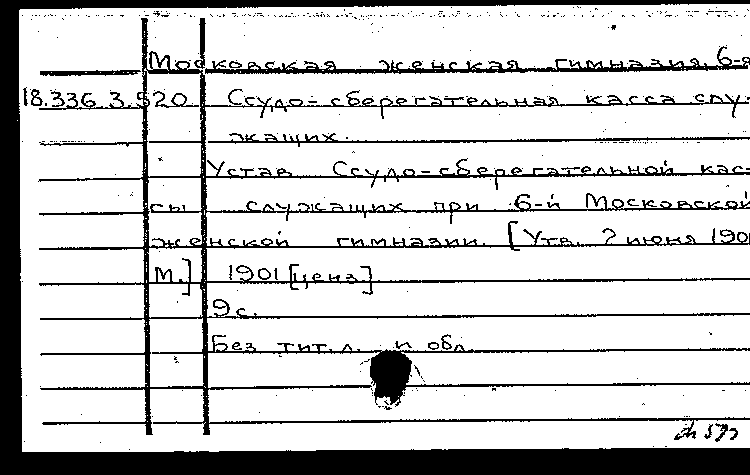 Московская женская гимназия, 6-я
18.336.3.520 Ссудо-сберегательная касса слу-
жащих.
Устав Ссудо-сберегательной кас-
сы служащих при 6-й Московской
женской гимназии. [Утв. 7 июня 1901
М.] 1901 [ценз]
9 с.
Без тит. л. и обл.